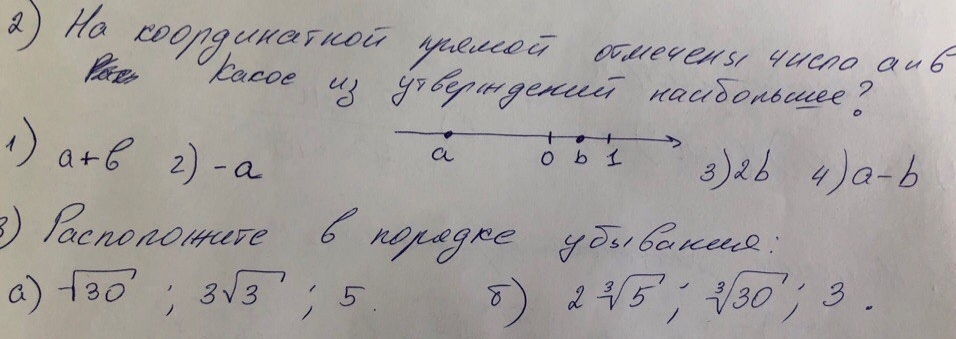 2) На координатной прямой отмечены числа а и в
Какое из утверждений наибольшее?
1) a+b 2) -a 3) 2b 4) a-b
a 0 b 1
3) Расположите в порядке убывания:
а) √30 ; 3√3 ; 5. б) 2∛5 ; ∛30 ; 3 .